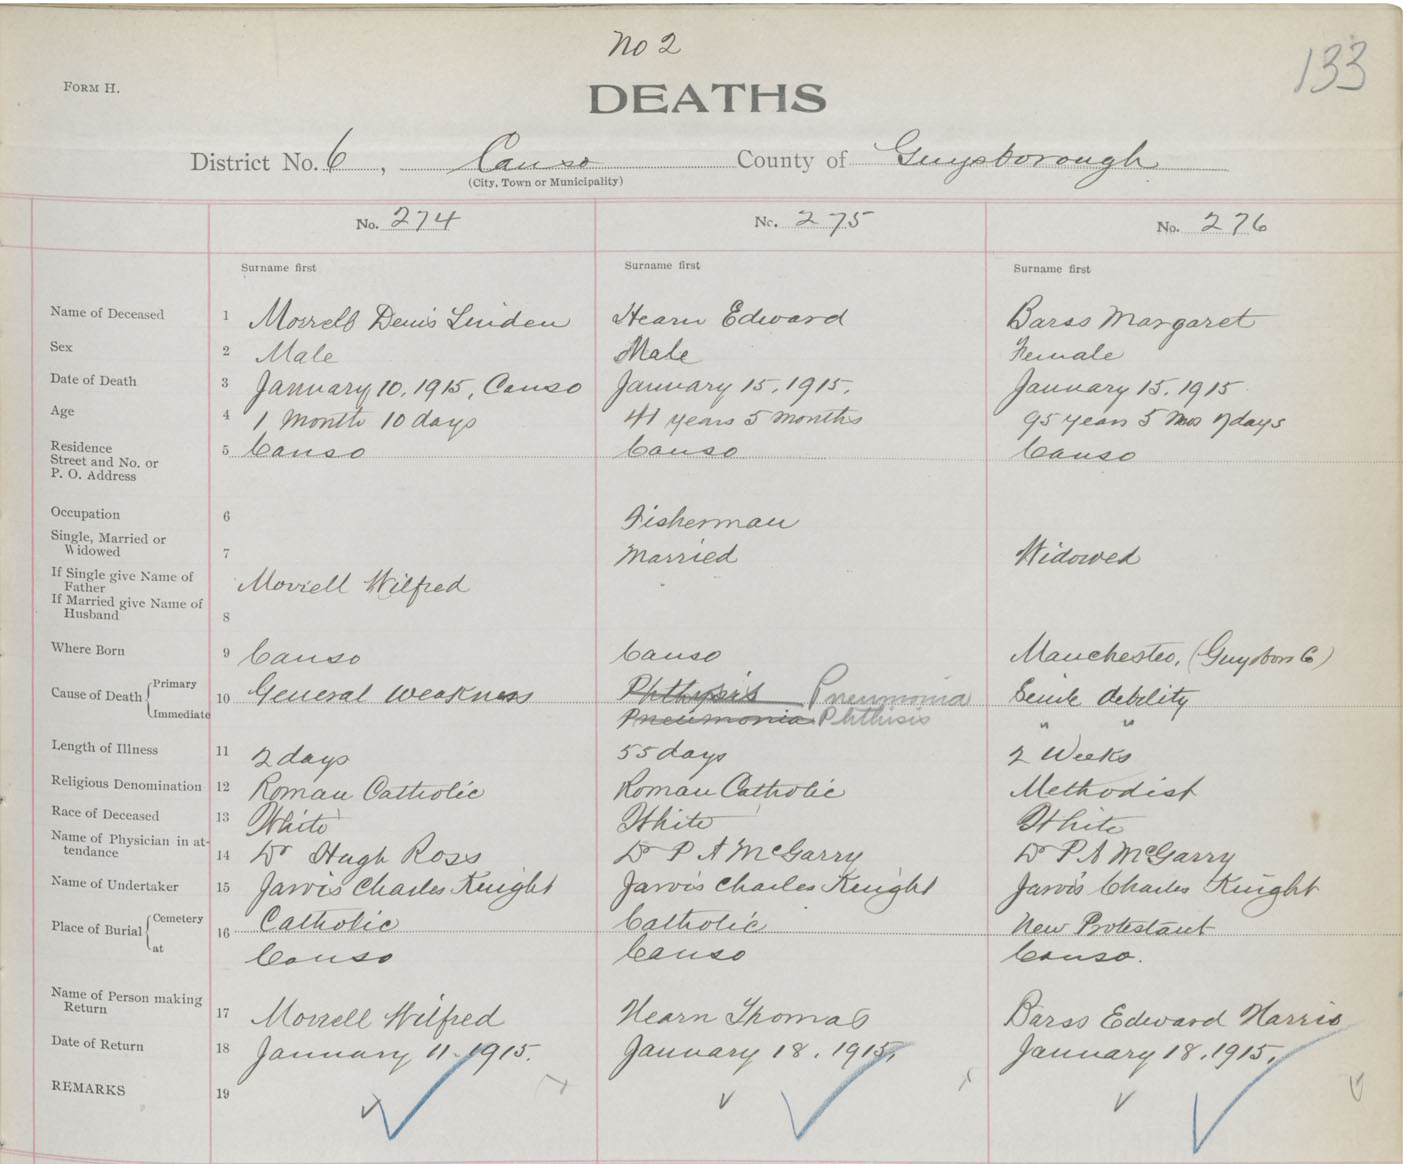 No 2
133
FORM H.
DEATHS
District No. 6, Canso County of Guysborough
(City, Town or Municipality)
No. 274 No. 275 No. 276
Surname first Surname first Surname first
Name of Deceased 1 Morrell Denis Linden Hearn Edward Barss Margaret
Sex 2 Male Male Female
Date of Death 3 January 10, 1915, Canso January 15, 1915. January 15, 1915
Age 4 1 month 10 days 41 years 5 months 95 years 5 mos 7 days
Residence
Street and No. or
P. O. Address 5 Canso Canso Canso
Occupation 6 Fisherman
Single, Married or
Widowed 7 Married Widowed
If Single give Name of
Father Morrell Wilfred
If Married give Name of
Husband 8
Where Born 9 Canso Canso Manchester, (Guysboro Co)
Cause of Death Primary 10 General Weakness Phthysis Pneumonia Senile debility
Immediate Pneumonia Phthisis " "
Length of Illness 11 2 days 55 days 2 Weeks
Religious Denomination 12 Roman Catholic Roman Catholic Methodist
Race of Deceased 13 White White White
Name of Physician in at-
tendance 14 Dr Hugh Ross Dr P A McGarry Dr P A McGarry
Name of Undertaker 15 Jarvis Charles Knight Jarvis Charles Knight Jarvis Charles Knight
Place of Burial Cemetery 16 Catholic Catholic New Protestant
at Canso Canso Canso.
Name of Person making
Return 17 Morrell Wilfred Hearn Thomas Barss Edward Harris
Date of Return 18 January 11. 1915. January 18. 1915, January 18. 1915,
REMARKS 19